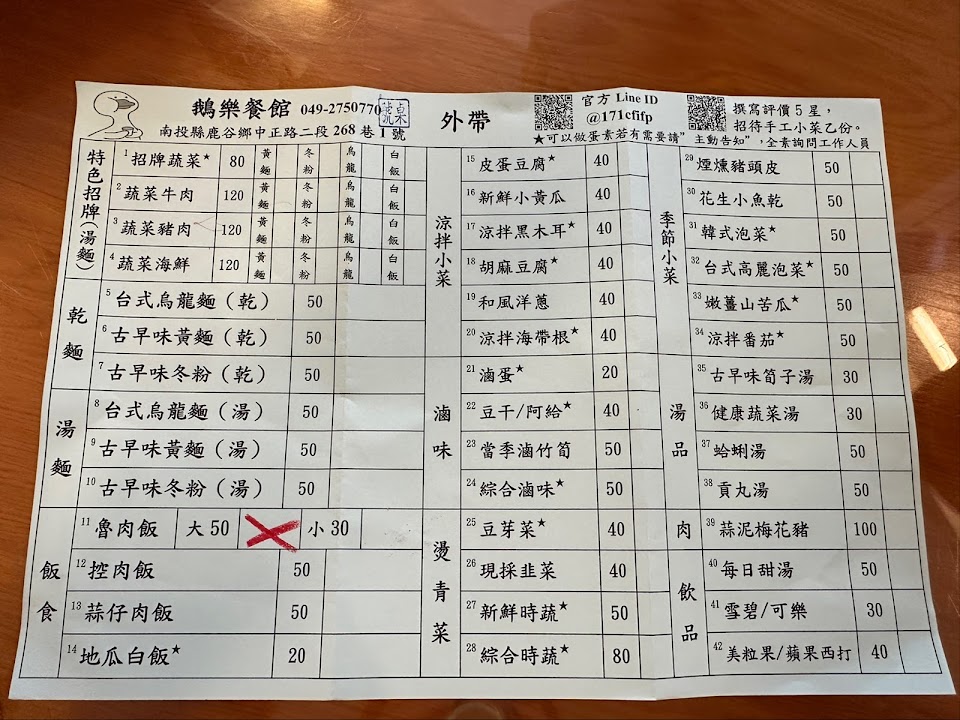 鵝樂餐館 049-2750770
南投縣鹿谷鄉中正路二段268巷1號
外帶
官方 Line ID
@171cfifp
撰寫評價5星，
招待手工小菜乙份。
★可以做蛋素若有需要請”主動告知”,全素詢問工作人員
特色招牌(湯麵)
1 招牌蔬菜★ 80 黃麵 冬粉 烏龍 白飯
2 蔬菜牛肉 120 黃麵 冬粉 烏龍 白飯
3 蔬菜豬肉 120 黃麵 冬粉 烏龍 白飯
4 蔬菜海鮮 120 黃麵 冬粉 烏龍 白飯
乾麵
5 台式烏龍麵(乾) 50
6 古早味黃麵(乾) 50
7 古早味冬粉(乾) 50
湯麵
8 台式烏龍麵(湯) 50
9 古早味黃麵(湯) 50
10 古早味冬粉(湯) 50
飯食
11 魯肉飯 大50 小30
12 控肉飯 50
13 蒜仔肉飯 50
14 地瓜白飯★ 20
涼拌小菜
15 皮蛋豆腐★ 40
16 新鮮小黃瓜 40
17 涼拌黑木耳★ 40
18 胡麻豆腐★ 40
19 和風洋蔥 40
20 涼拌海帶根★ 40
滷味
21 滷蛋★ 20
22 豆干/阿給★ 40
23 當季滷竹筍 50
24 綜合滷味★ 50
燙青菜
25 豆芽菜★ 40
26 現採韭菜 40
27 新鮮時蔬★ 50
28 綜合時蔬★ 80
季節小菜
29 煙燻豬頭皮 50
30 花生小魚乾 50
31 韓式泡菜★ 50
32 台式高麗泡菜★ 50
33 嫩薑山苦瓜★ 50
34 涼拌番茄★ 50
湯品
35 古早味筍子湯 30
36 健康蔬菜湯 30
37 蛤蜊湯 50
38 貢丸湯 50
肉
39 蒜泥梅花豬 100
飲品
40 每日甜湯 50
41 雪碧/可樂 30
42 美粒果/蘋果西打 40